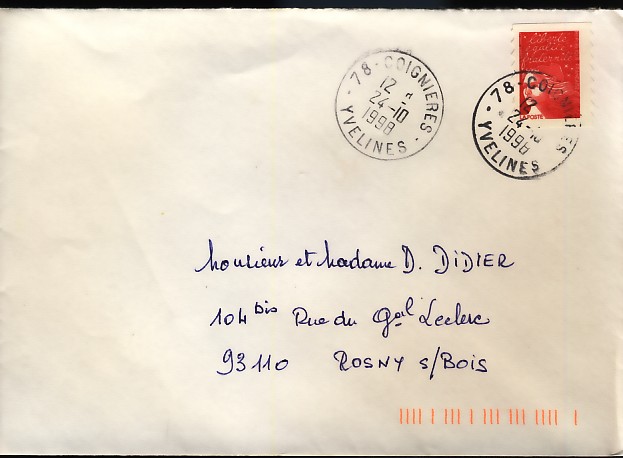 Liberté
égalité
fraternité
LA POSTE
78 - COIGNIERES
12 H
24-10
1998
YVELINES
78 - COIGNIERES
24-10
1998
YVELINES
Monsieur et Madame D. DIDIER
104 bis Rue du Gal Leclerc
93110 ROSNY s/Bois